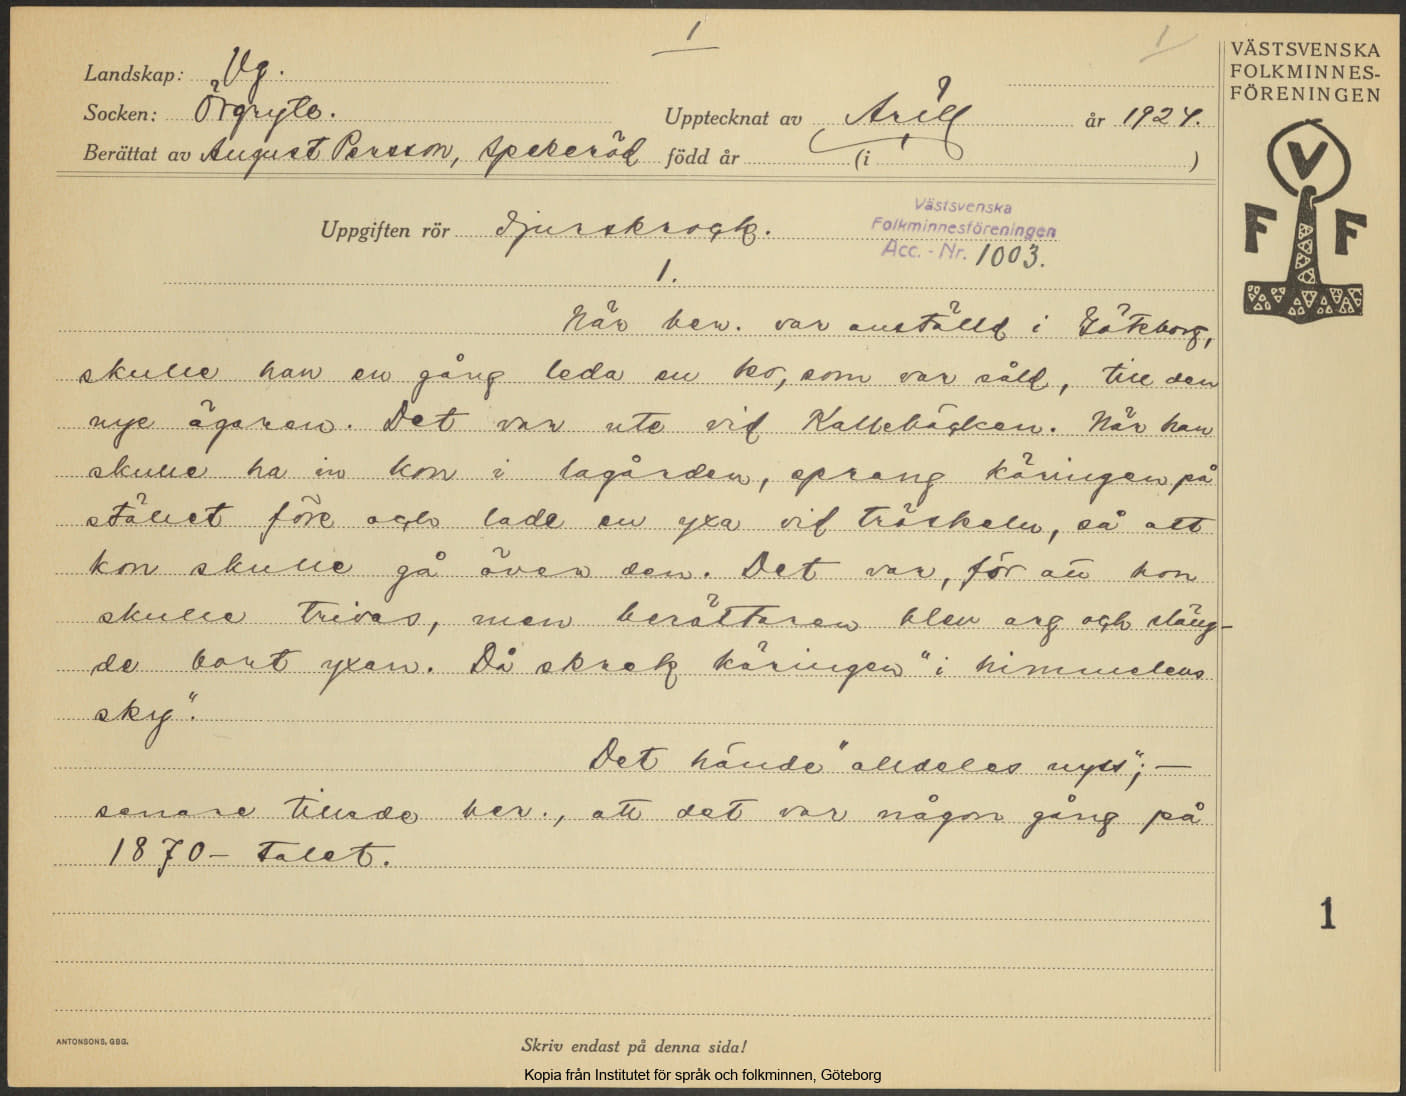 1
1
VÄSTSVENSKA
FOLKMINNES-
FÖRENINGEN
Landskap: Vg.
Socken: Örgryte. Upptecknat av Arill år 1924.
Berättat av August Persson, Spekeröd född år (i )
Uppgiften rör djurskrock.
Västsvenska
Folkminnesföreningen
Acc. - Nr. 1003.
V
F F
1.
När ber. var anställd i Göteborg,
skulle han en gång leda en ko, som var såld, till den
nye ägaren. Det var ute vid Kallebäcken. När han
skulle ha in kon i lagården, sprang käringen på
stället före och lade en yxa vid tröskeln, så att
kon skulle gå över den. Det var, för att hon
skulle trivas, men berättaren blev arg och släng-
de bort yxan. Då skrek käringen "i himmelens
sky".
Det hände "alldeles nyss"; —
senare tillade ber., att det var någon gång på
1870-talet.
1
ANTONSONS, GBG.
Skriv endast på denna sida!
Kopia från Institutet för språk och folkminnen, Göteborg